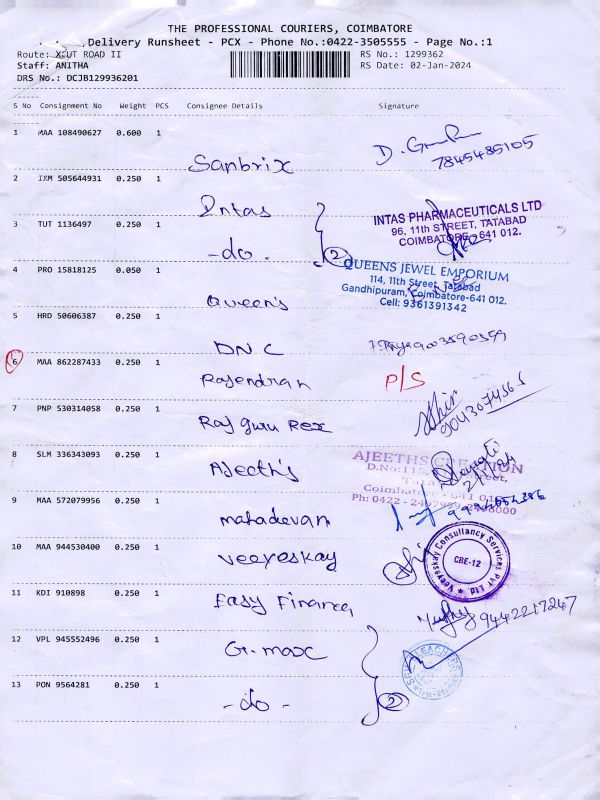 THE PROFESSIONAL COURIERS, COIMBATORE
Delivery Runsheet - PCX - Phone No.:0422-3505555 - Page No.:1
Route: X CUT ROAD II RS No.: 1299362
Staff: ANITHA RS Date: 02-Jan-2024
DRS No.: DCJB129936201
S No Consignment No Weight PCS Consignee Details Signature
1 MAA 108490627 0.600 1
D. 7845485105
Sanbrix
2 IXM 505644931 0.250 1
Intas
INTAS PHARMACEUTICALS LTD
96, 11th STREET, TATABAD
COIMBATORE-641 012.
3 TUT 1136497 0.250 1
-do. 2
4 PRO 15818125 0.050 1
QUEENS JEWEL EMPORIUM
114, 11th Street, Tatabad
Gandhipuram, Coimbatore-641 012.
Cell: 9361391342
Queen's
5 HRD 50606387 0.250 1
DNC
6 MAA 862287433 0.250 1
Rajendran P/S
7 PNP 530314058 0.250 1
Raj Guru Rex 9043074565
8 SLM 336343093 0.250 1
AJEETHS CREATION
Ajeeth's
2/1/24
9 MAA 572079956 0.250 1
mahadevan
10 MAA 944530400 0.250 1
Veeyeskay
Veeyeskay Consultancy Services Pvt Ltd
CBE-12
11 KDI 910898 0.250 1
Easy Finance
9442217247
12 VPL 945552496 0.250 1
G. max
13 PON 9564281 0.250 1
-do- 2